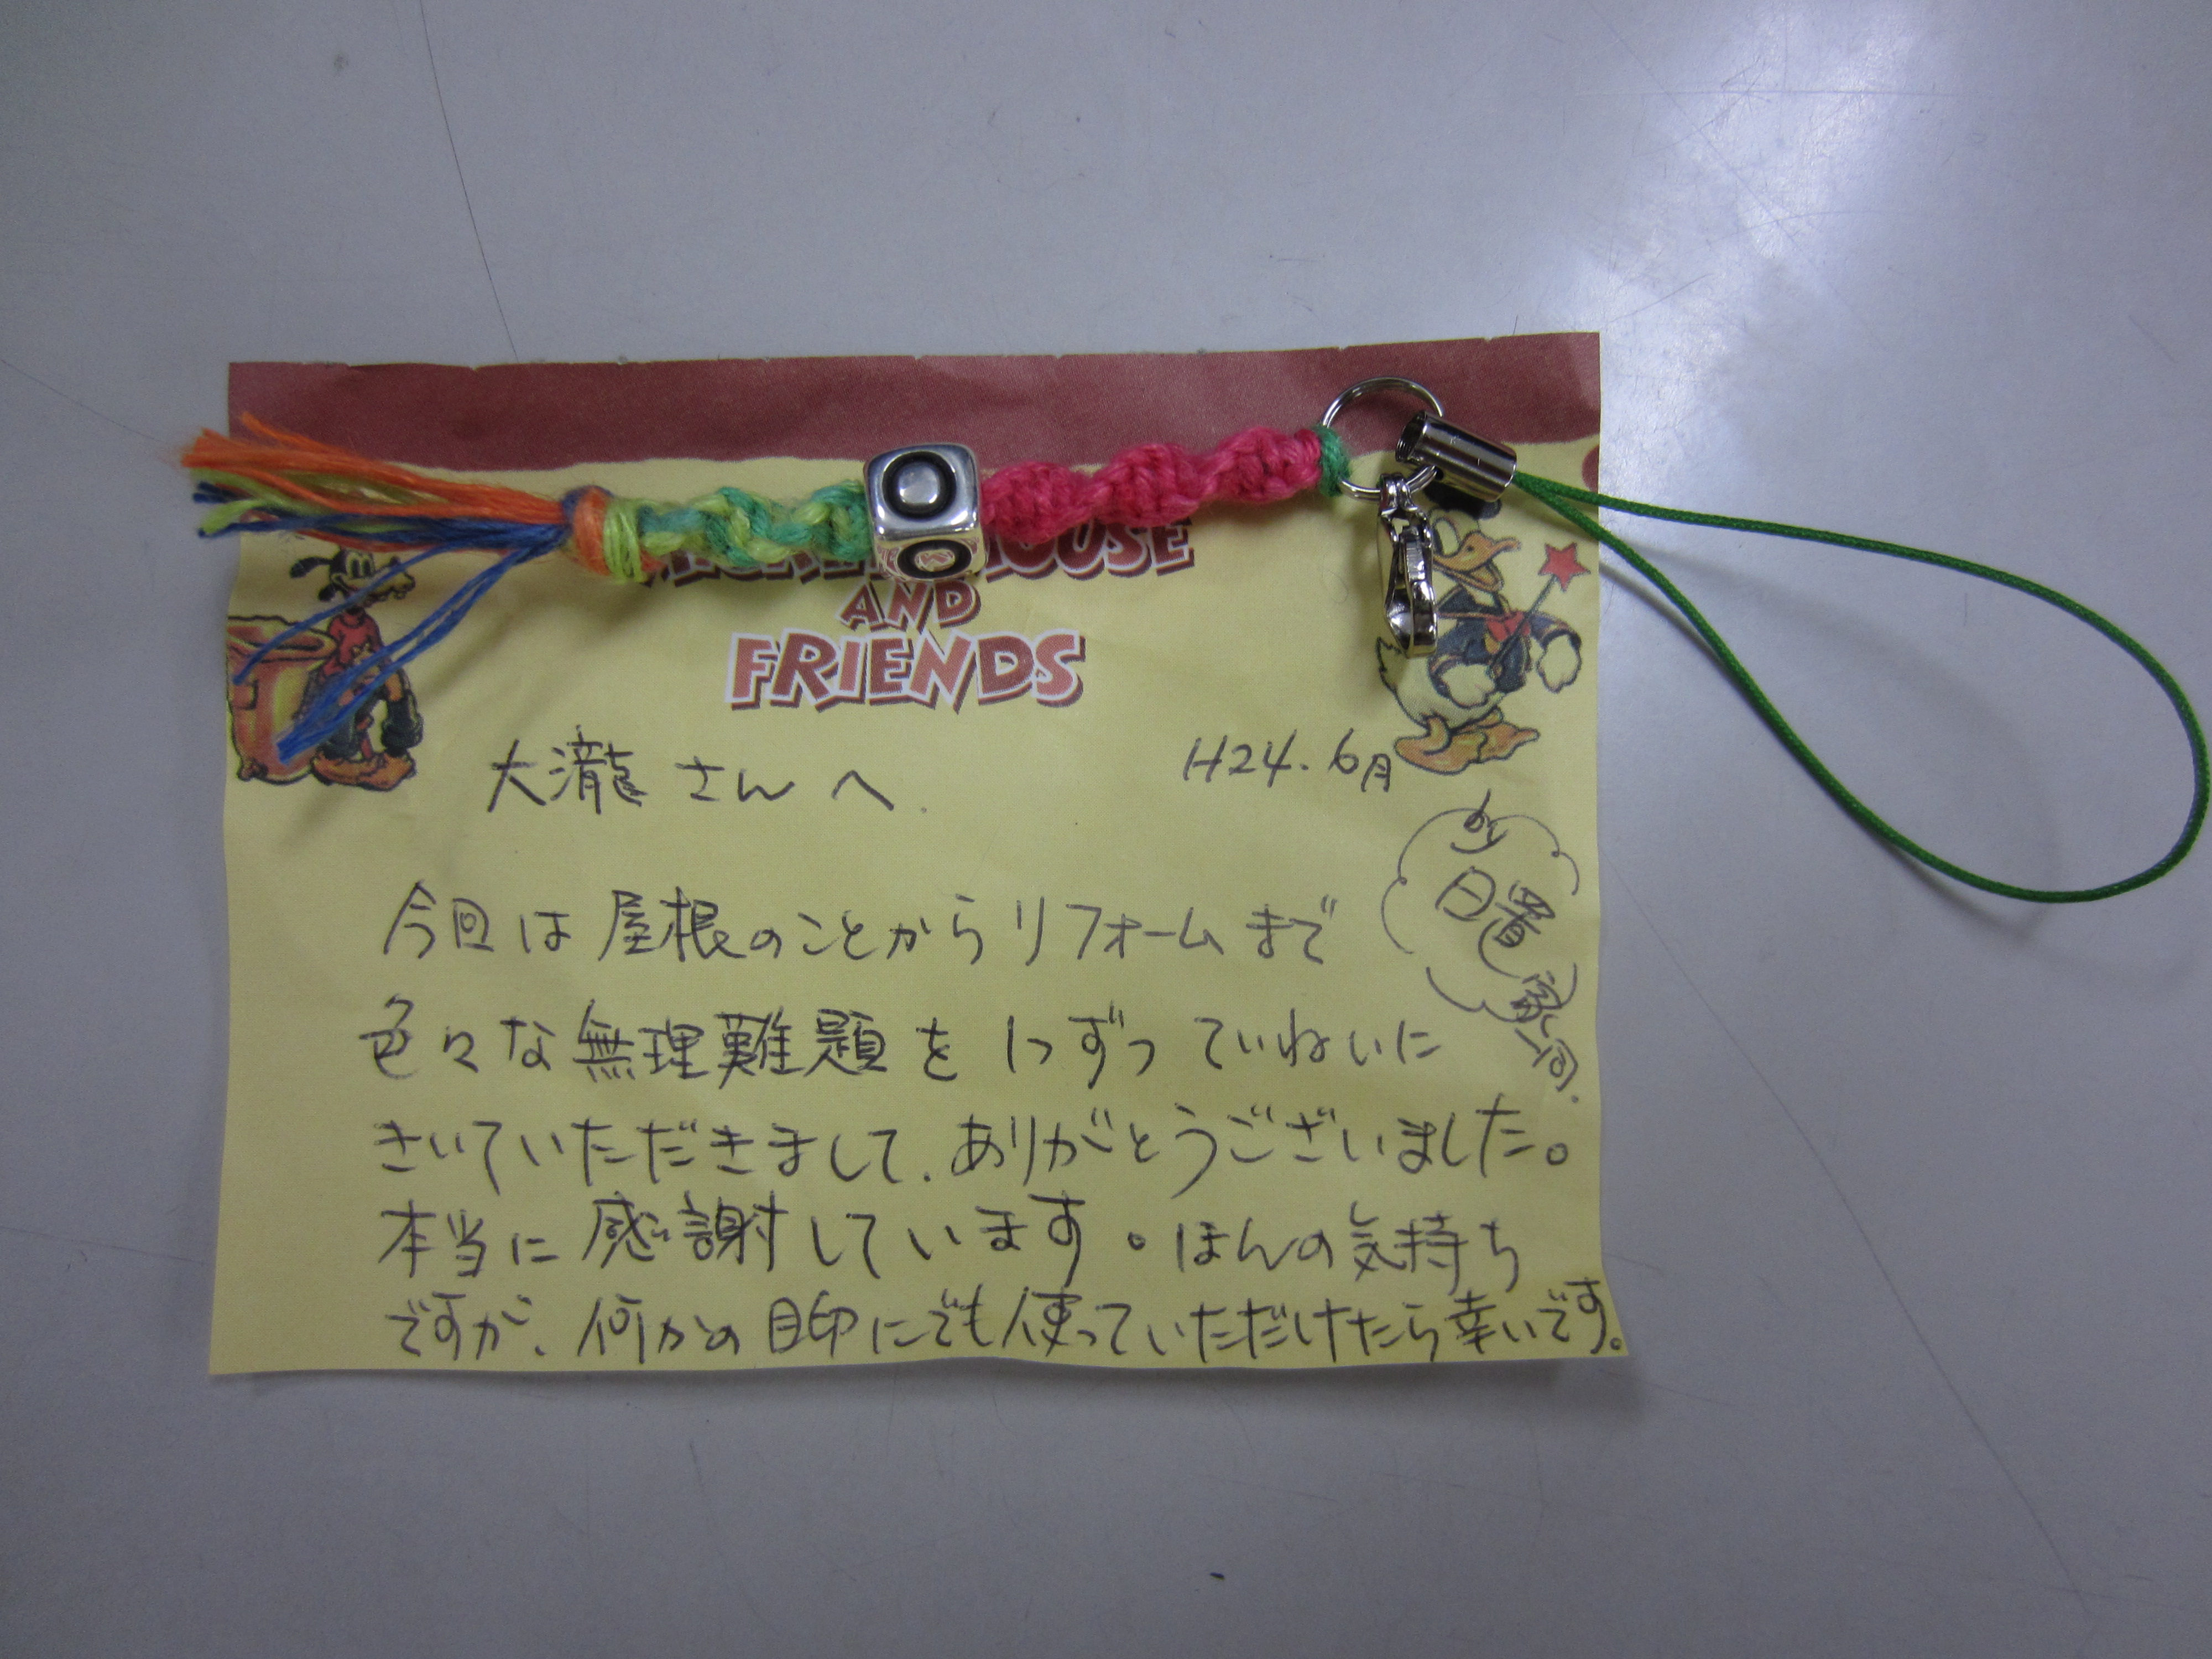 MOUSE
AND
FRIENDS
大瀧さんへ.
H24.6月
by
日置
家一同.
今回は屋根のことからリフォームまで
色々な無理難題を1つずつていねいに
きいていただきまして、ありがとうございました。
本当に感謝しています。ほんの気持ち
ですが、何かの目印にでも使っていただけたら幸いです。
O